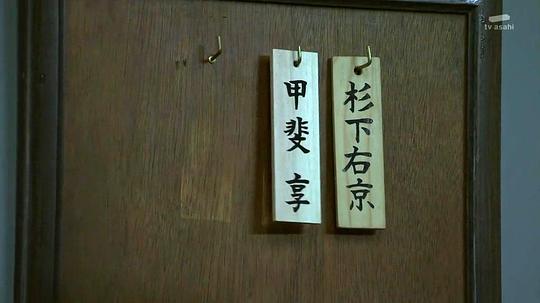 tv asahi
杉下右京
甲斐 享